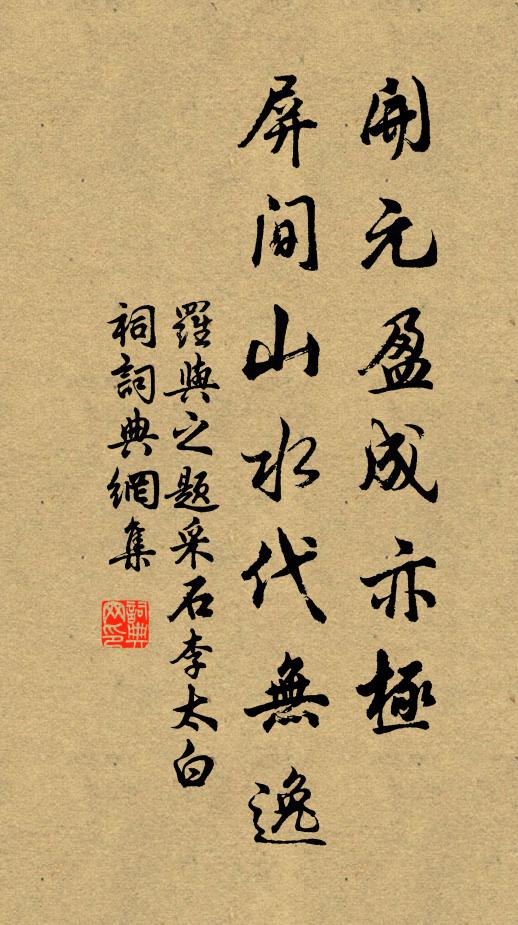 開元盈成亦極
屏間山水代無逸
羅與之題采石李太白
祠詞典網集
詞典
网印